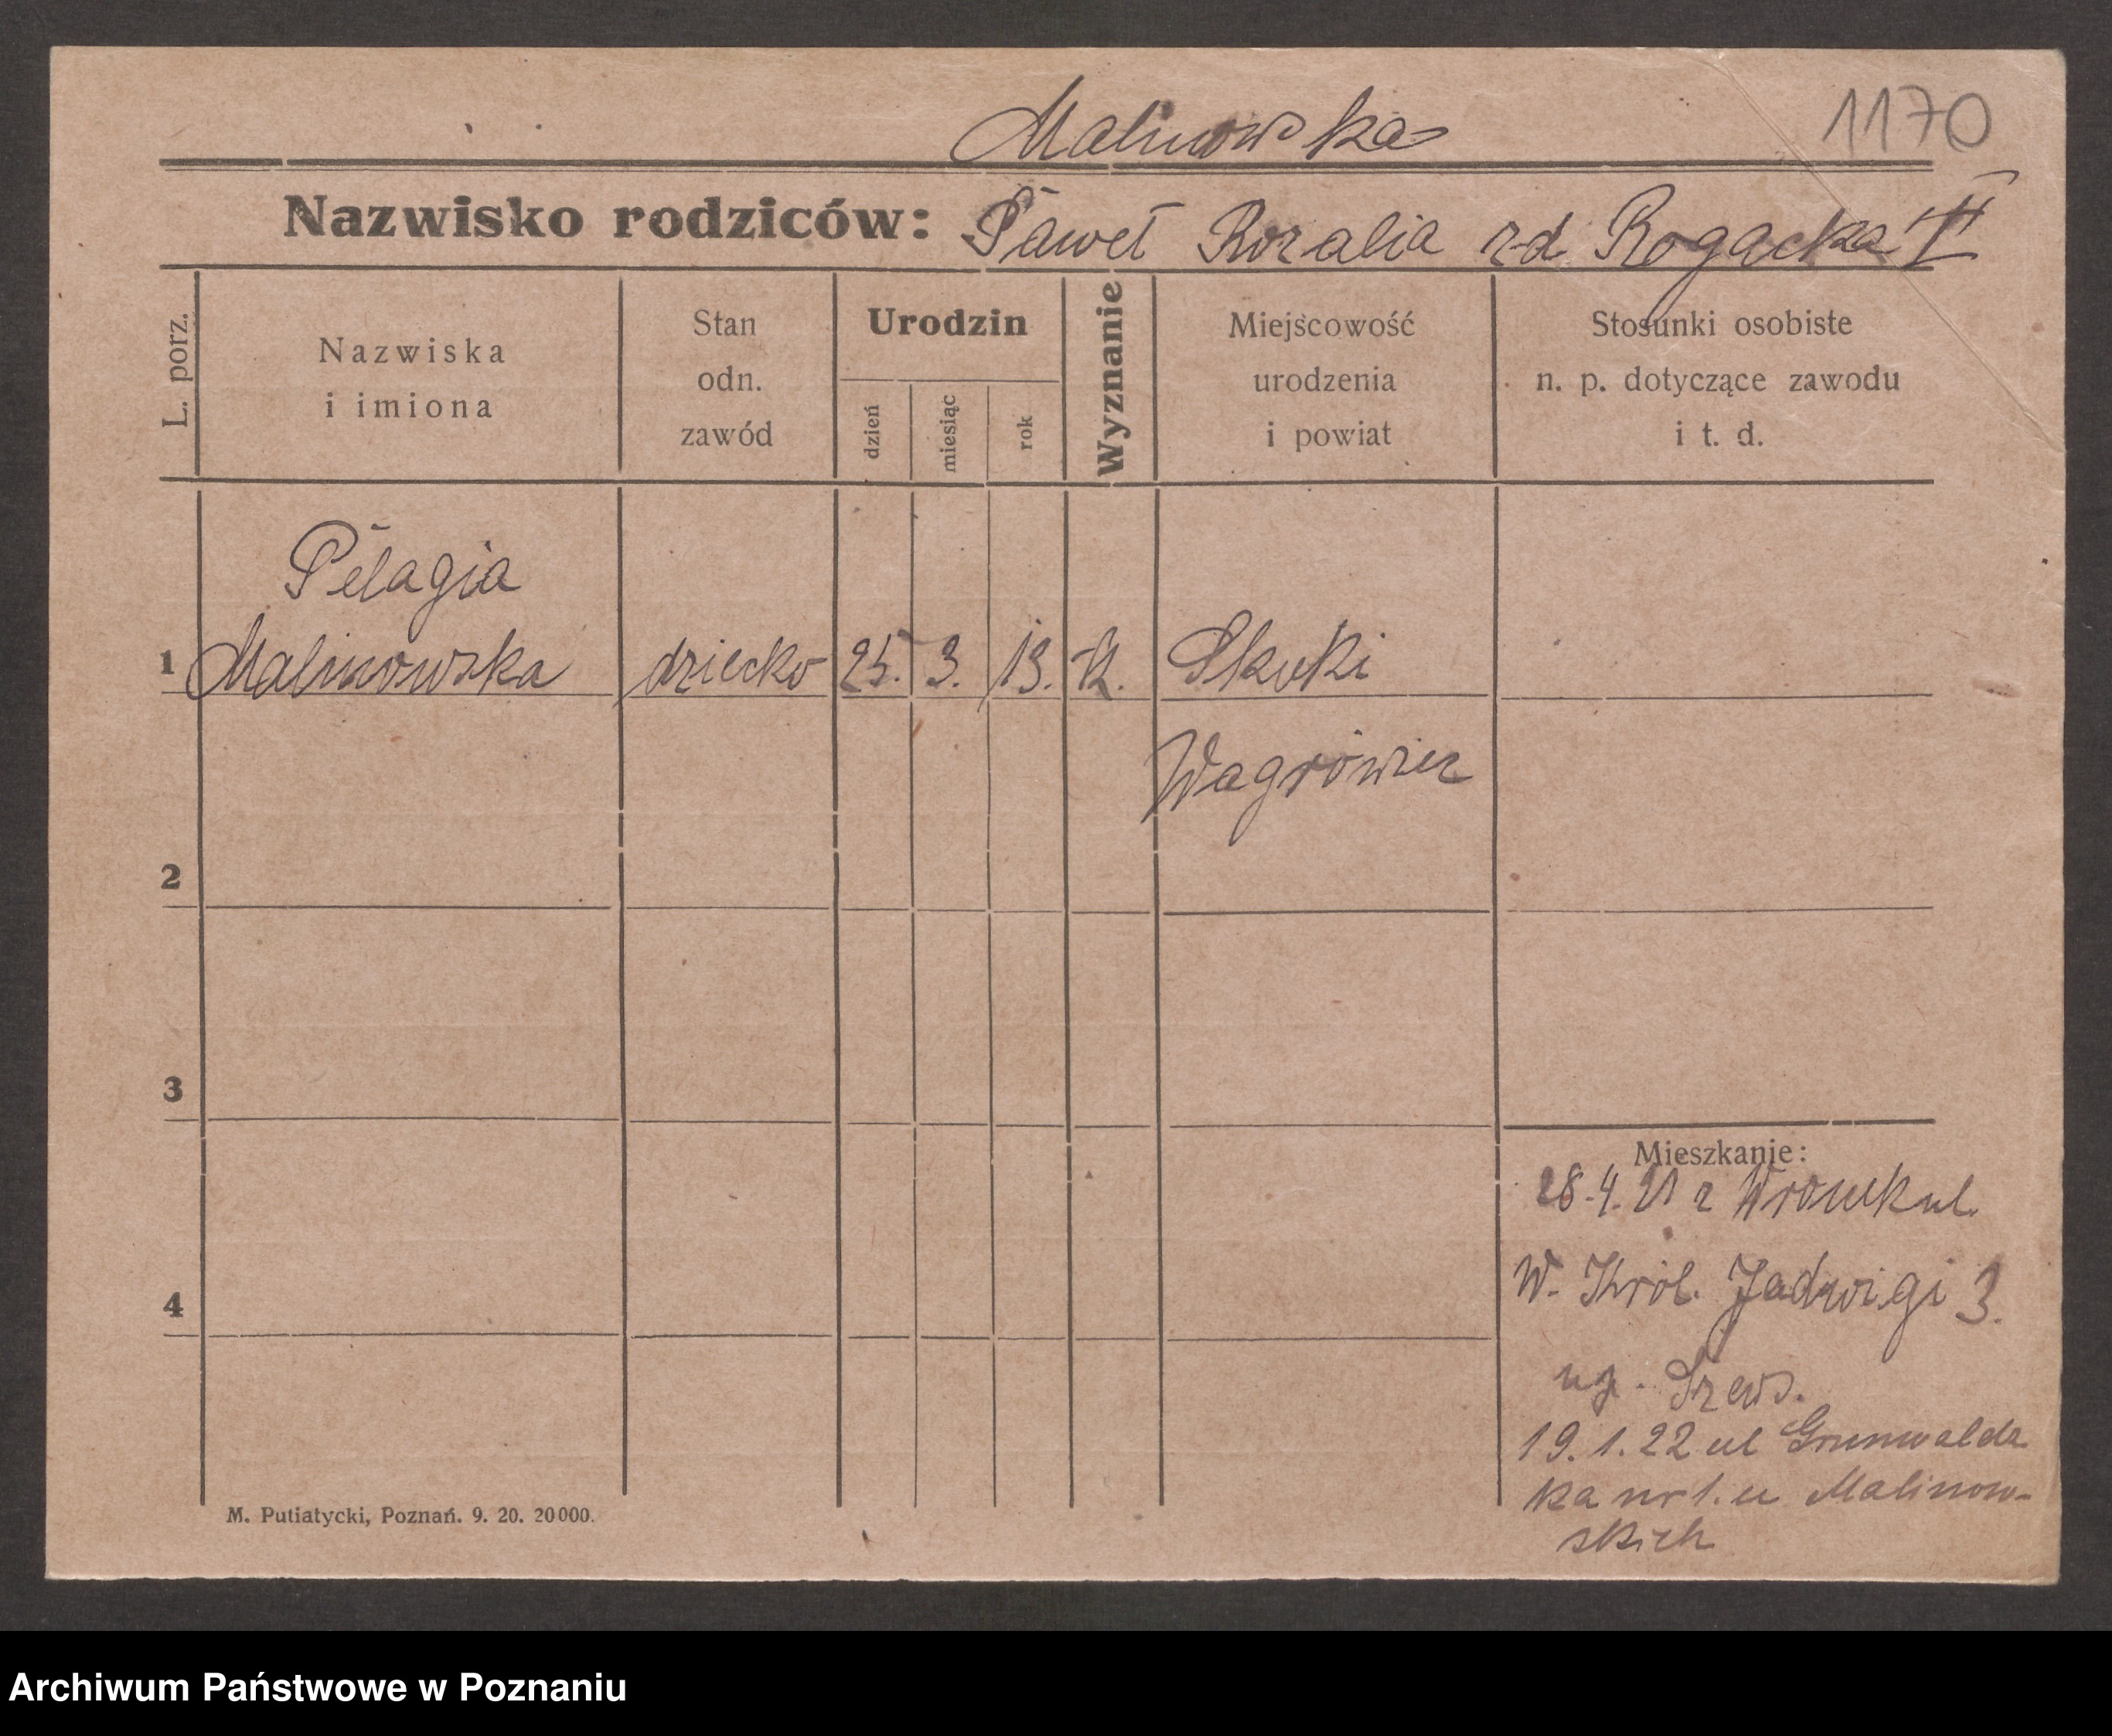 Malinowska
1170
Nazwisko rodziców: Paweł Rozalia zd Rogacka II
L. porz.
Nazwiska
i imiona
Stan
odn.
zawód
Urodzin
dzień
miesiąc
rok
Wyznanie
Miejscowość
urodzenia
i powiat
Stosunki osobiste
n. p. dotyczące zawodu
i t. d.
Pelagia
1 Malinowska dziecko 25. 3. 13. k. Skoki
Wagrówiec
2
3
4
Mieszkanie:
28.4.21 z Wronek ul.
W. Król. Jadwigi 3.
Szews.
19.1.22 ul Grunwaldz
ka nr 1. u Malinow-
skich
M. Putiatycki, Poznań. 9. 20. 20000.
Archiwum Państwowe w Poznaniu